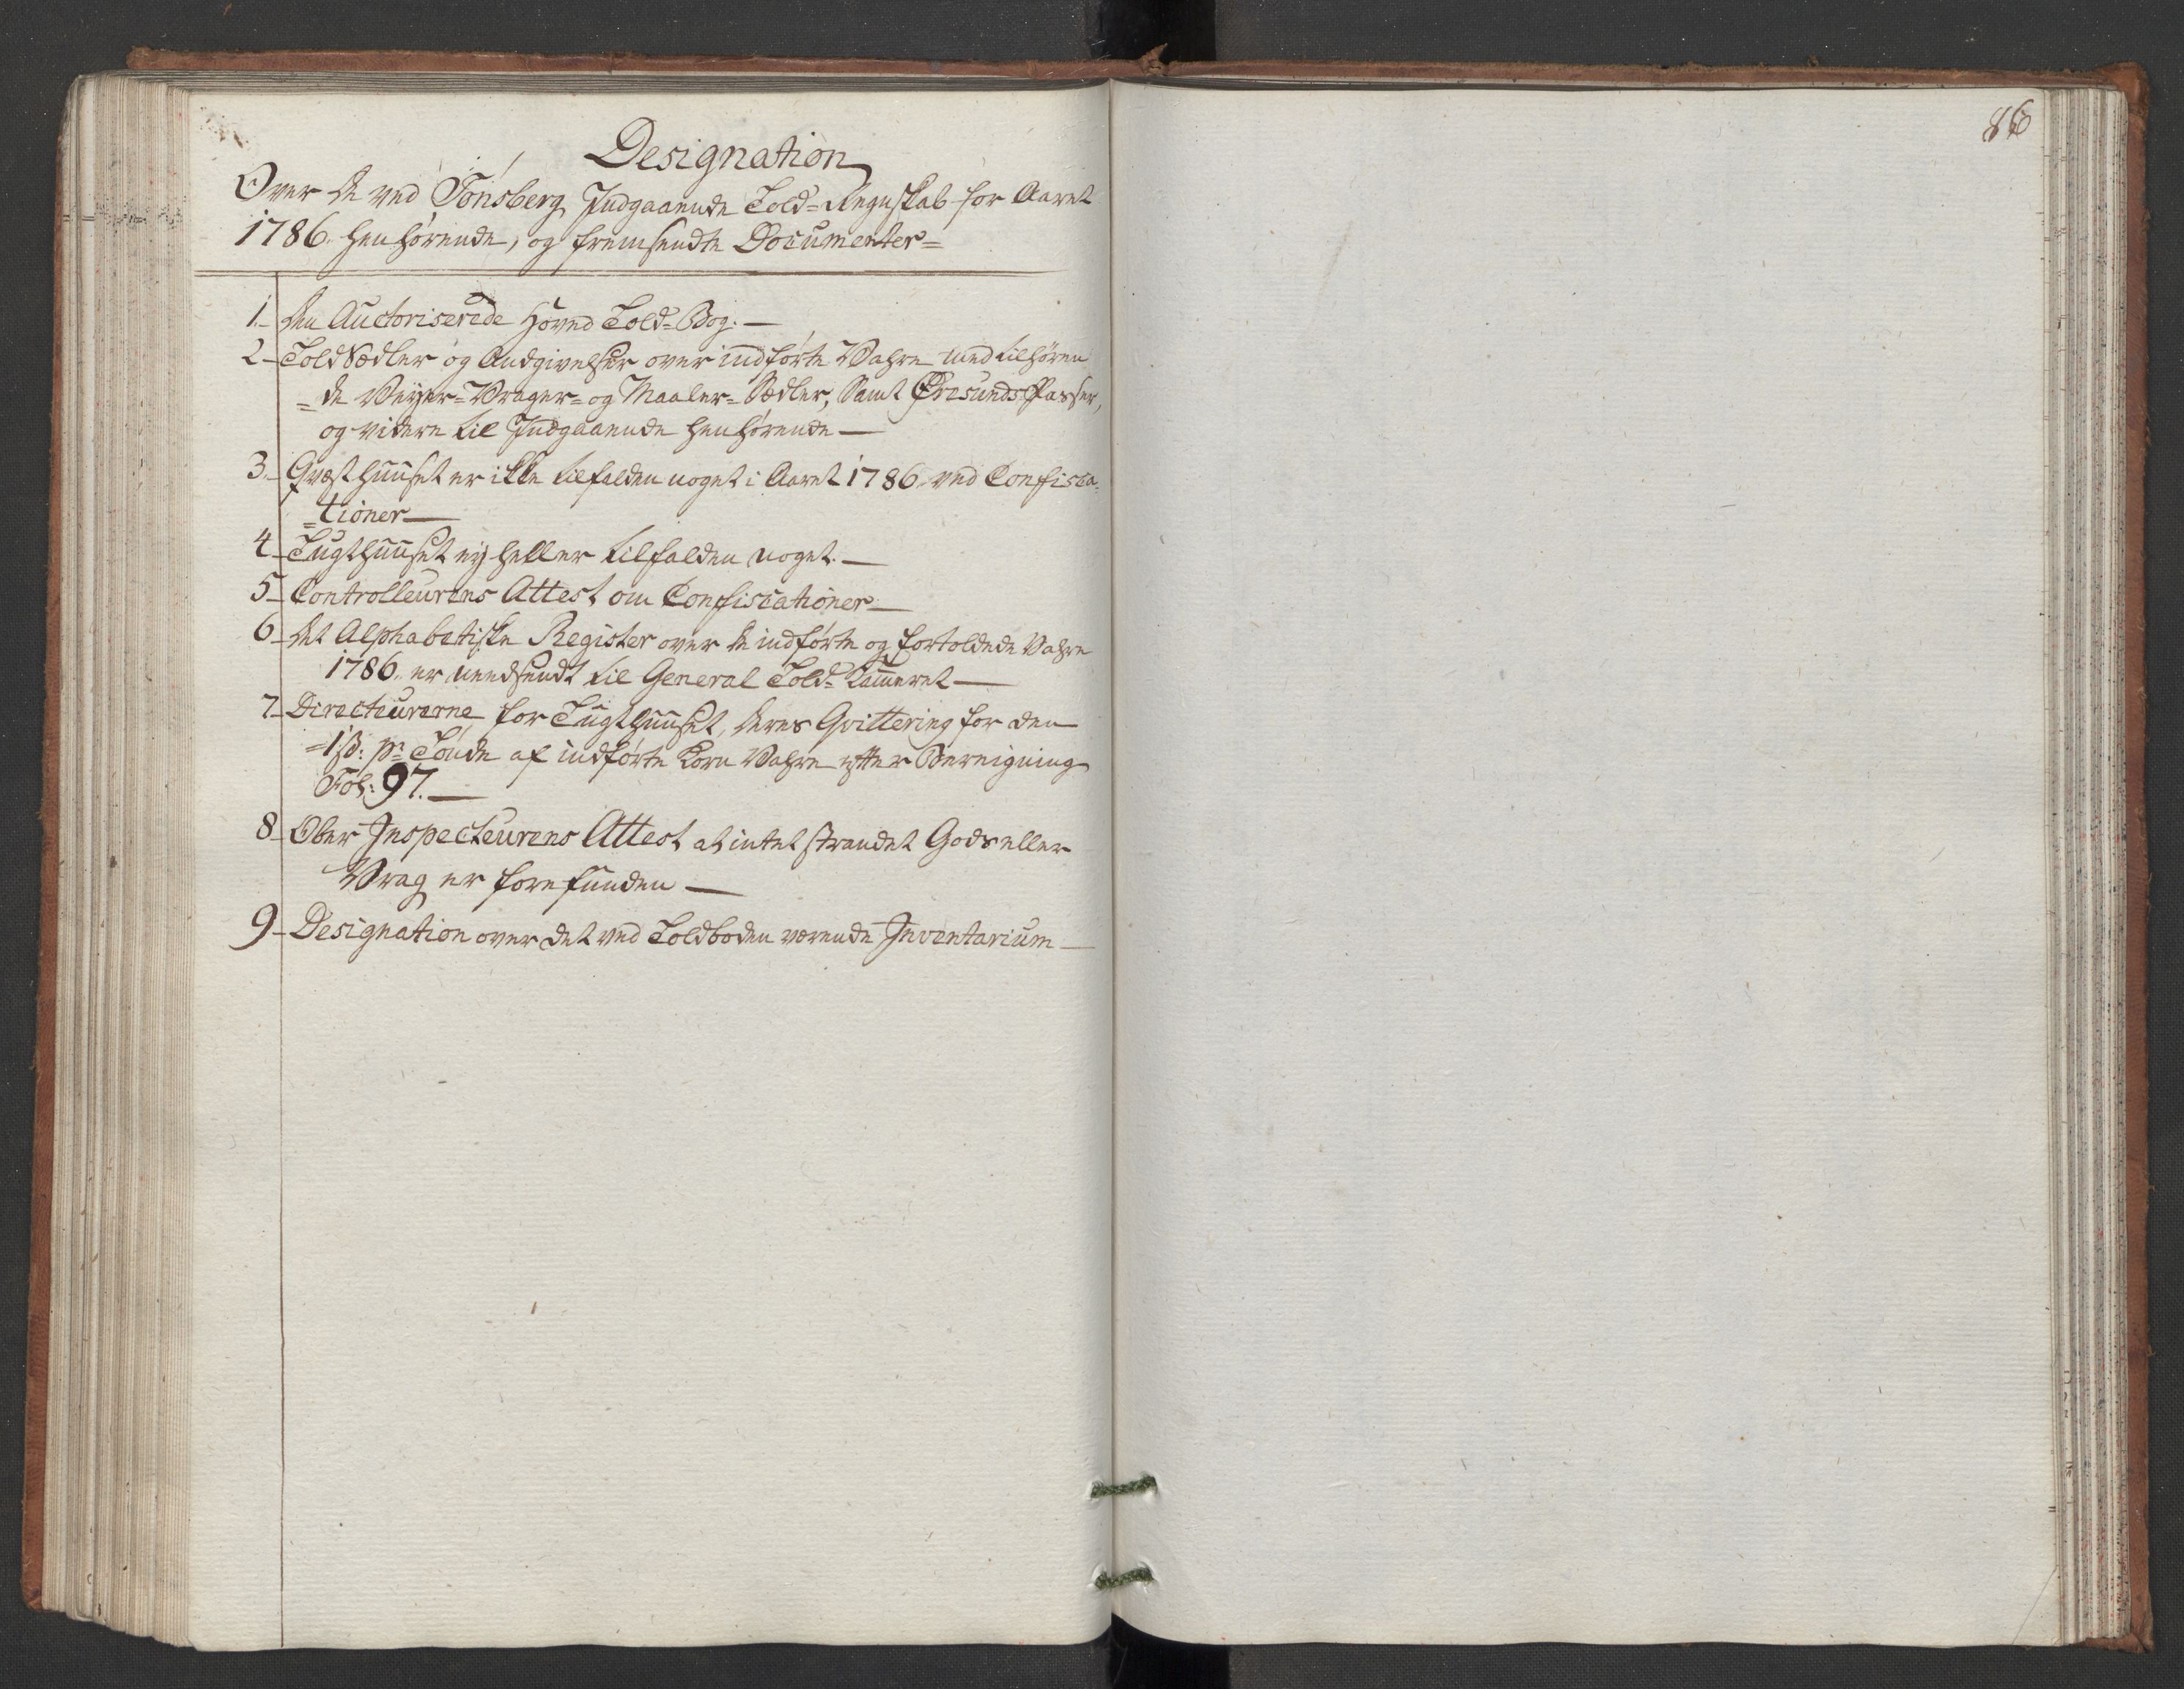 Designation
Over de ved Tønsberg Indgaaende Told=Regnskab for Aaret
1786 henhørende, og fremsendte Documenter=
1. Den Auctoriserede Hoved Told=Bog.
2 Told Sedler og Andgivelser over indførte Vahre med tilhøren
=de Veyer=Vrager= og Maaler=Sedler, Samt Øresunds Passer,
og videre til Indgaaende henhørende
3. Qvæsthuuset er ikke tilfalden noget i Aaret 1786 ved Confisca=
=tioner
4 Tugthuuset ey heller tilfalden noget.
5 Controlleurens Attest om Confiscationer
6 Det Alphabetiske Register over de indførte og fortoldede Vahre
1786 er needsendt til General Told=Kammeret
7 Directeurerne for Tugthuuset, deres Qvittering for den
=1 ß: pr Tønde af indførte Korn Vahre efter Beregning
Fol: 97.
8 Ober Inspecteurens Attest at intet strandet Gods eller
Vrag er forefunden
9 Designation over det ved Toldboden værende Inventarium
86